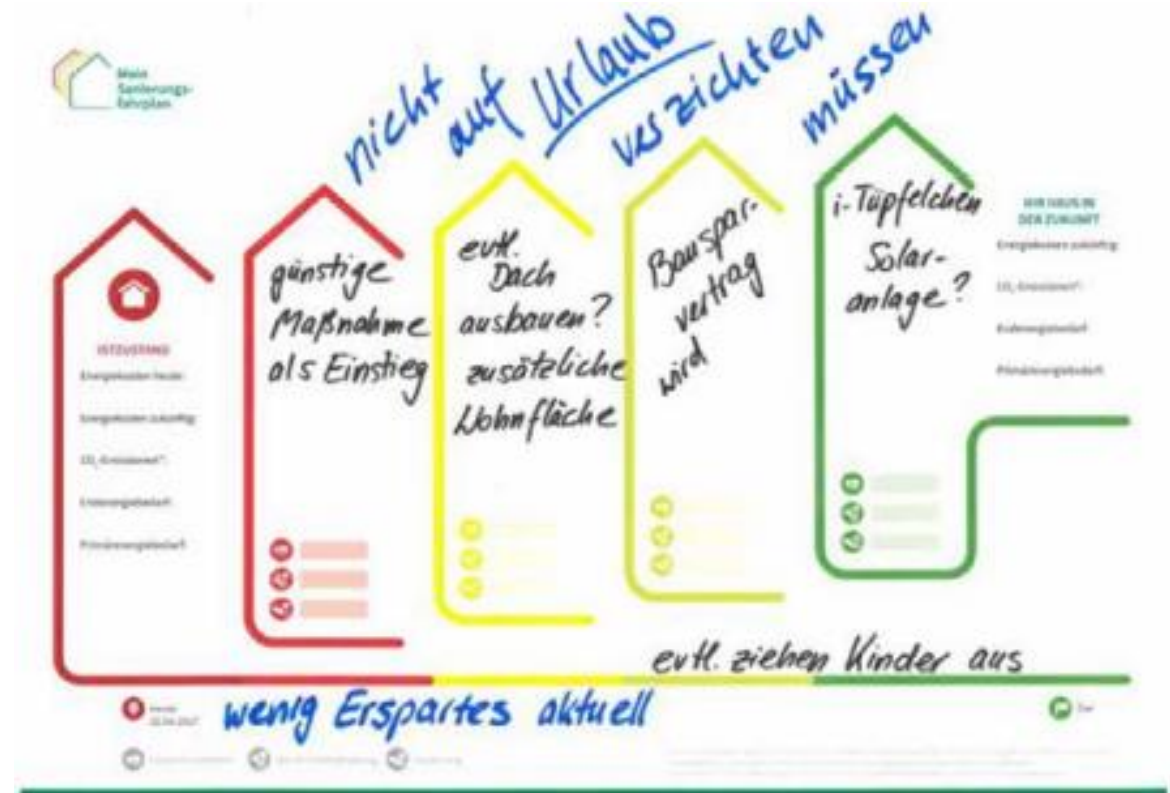 Mein
Sanierungs-
fahrplan
nicht auf Urlaub verzichten müssen
ISTZUSTAND
Energiekosten heute:
Energiekosten zukünftig:
CO₂-Emissionen*:
Endenergiebedarf:
Primärenergiebedarf:
günstige
Maßnahme
als Einstieg
evtl.
Dach
ausbauen?
zusätzliche
Wohnfläche
Bauspar-
vertrag
wird
i-Tüpfelchen
Solar-
anlage?
IHR HAUS IN
DER ZUKUNFT
Energiekosten zukünftig:
CO₂-Emissionen*:
Endenergiebedarf:
Primärenergiebedarf:
evtl. ziehen Kinder aus
Heute
wenig Erspartes aktuell
Ziel